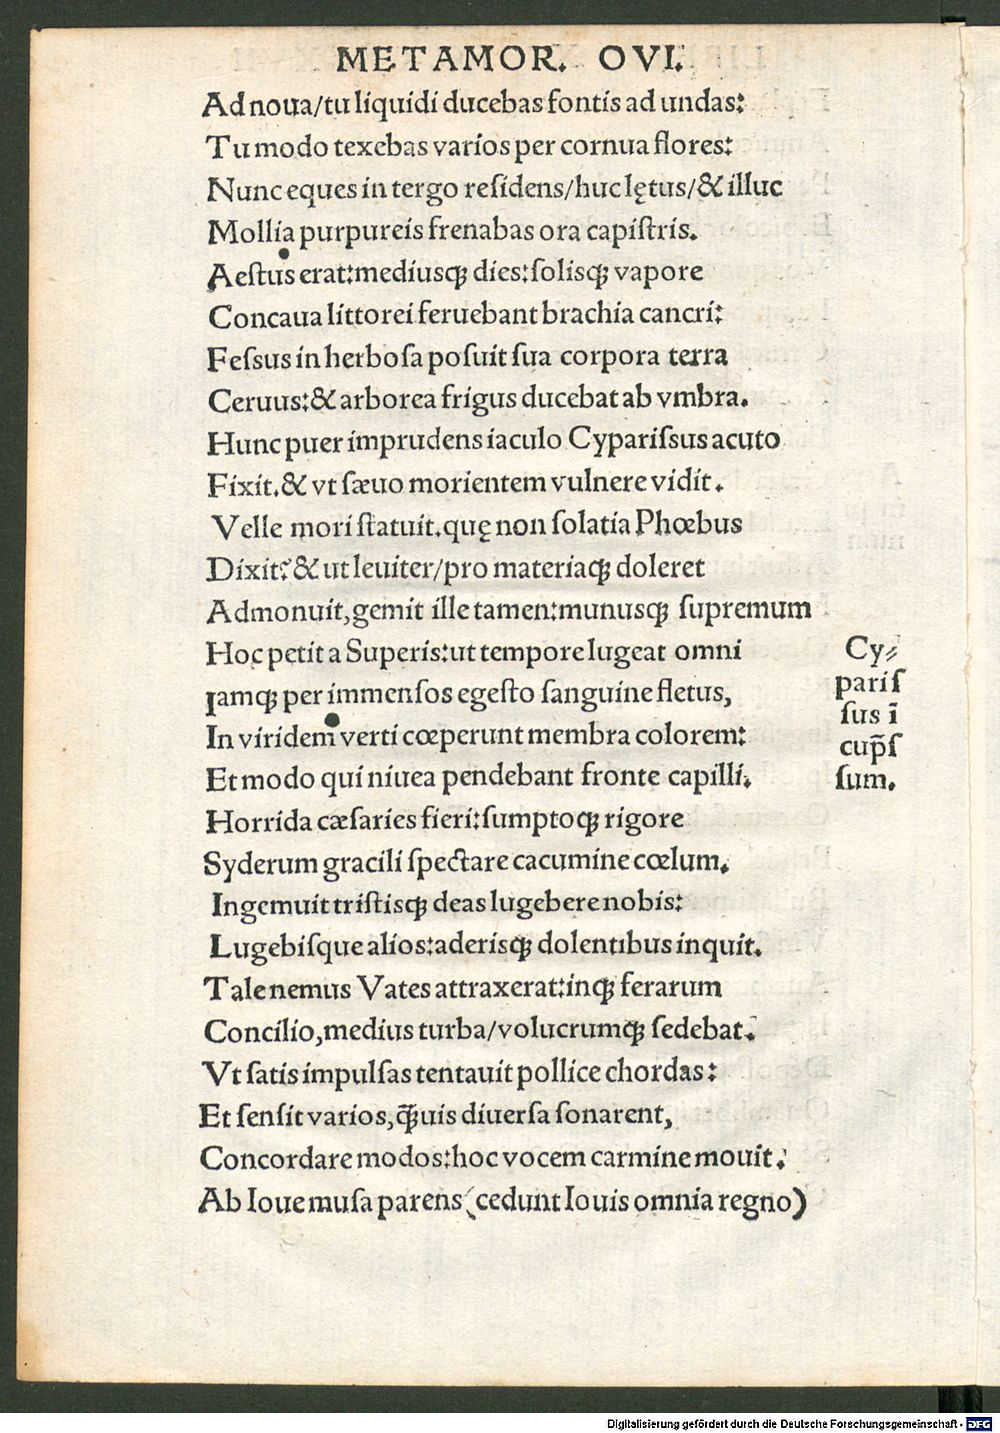 METAMOR. OVI.
Ad noua/tu liquidi ducebas fontis ad undas:
Tu modo texebas varios per cornua flores:
Nunc eques in tergo residens/huc lętus/& illuc
Mollia purpureis frenabas ora capistris.
Aestus erat:mediusq; dies:solisq; vapore
Concaua littorei feruebant brachia cancri:
Fessus in herbosa posuit sua corpora terra
Ceruus:& arborea frigus ducebat ab vmbra.
Hunc puer imprudens iaculo Cyparissus acuto
Fixit.& vt sæuo morientem vulnere vidit.
Velle mori statuit.quę non solatia Phœbus
Dixit? & ut leuiter/pro materiaq; doleret
Admonuit,gemit ille tamen:munusq; supremum
Hoc petit a Superis:ut tempore lugeat omni
Iamq; per immensos egesto sanguine fletus,
In viridem verti cœperunt membra colorem:
Et modo qui niuea pendebant fronte capilli.
Horrida cæsaries fieri:sumptoq; rigore
Syderum gracili spectare cacumine cœlum.
Ingemuit tristisq; deas lugebere nobis:
Lugebisque alios:aderisq; dolentibus inquit.
Tale nemus Vates attraxerat:inq; ferarum
Concilio,medius turba/volucrumq; sedebat.
Vt satis impulsas tentauit pollice chordas:
Et sensit varios,q̃uis diuersa sonarent,
Concordare modos:hoc vocem carmine mouit.
Ab Ioue musa parens (cedunt Iouis omnia regno)
Cy⸗
paris
sus ĩ
cup̃s
sum.
Digitalisierung gefördert durch die Deutsche Forschungsgemeinschaft - DFG